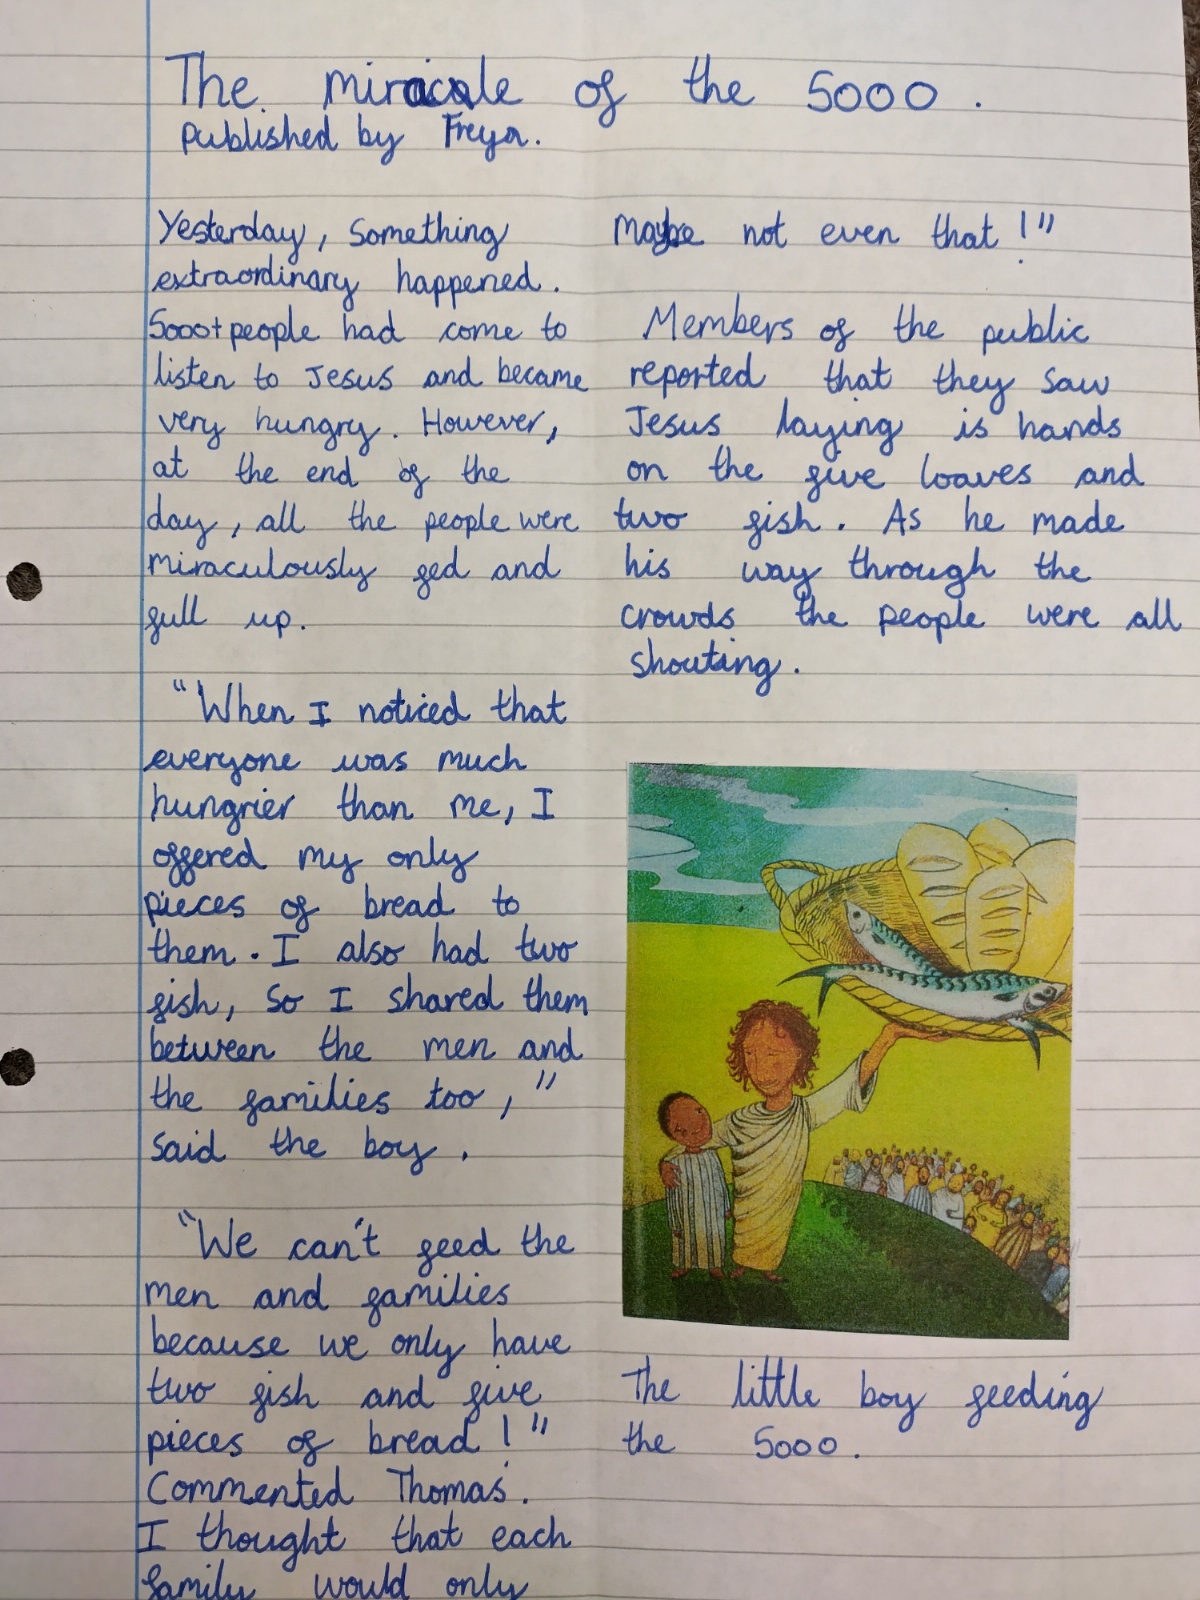 The miracle of the 5000.
Published by Freya.
Yesterday, Something
extraordinary happened.
5000+ people had come to
listen to Jesus and became
very hungry. However,
at the end of the
day, all the people were
miraculously fed and
full up.
"When I noticed that
everyone was much
hungrier than me, I
offered my only
pieces of bread to
them. I also had two
fish, so I shared them
between the men and
the families too,"
said the boy.
"We can't feed the
men and families
because we only have
two fish and five
pieces of bread!"
Commented Thomas.
I thought that each
family would only
Maybe not even that!"
Members of the public
reported that they saw
Jesus laying is hands
on the five loaves and
two fish. As he made
his way through the
crowds the people were all
shouting.
The little boy feeding
the 5000.